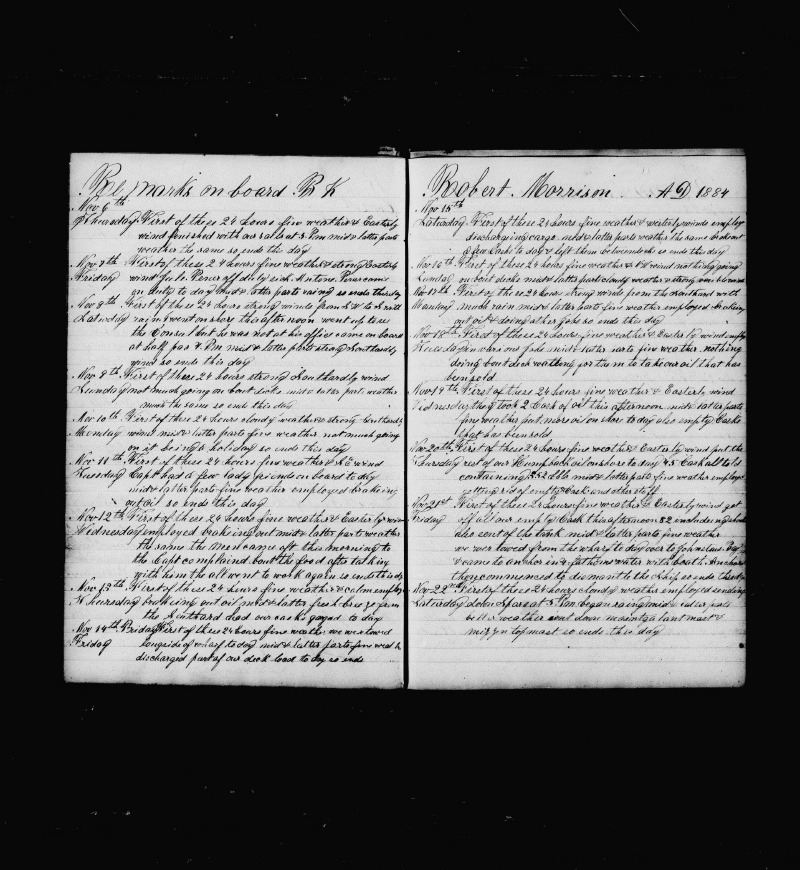 Remarks on board Bk
Nov 6th
Thursday First of these 24 hours fine weather & Easterly
wind finished with our salt at 3 Pm mid & latter parts
weather the same so ends this day
Nov 7th First of these 24 hours fine weather & strong Easterly
Friday wind
on duty to day mid & latter parts so ends this day
Nov 8th First of these 24 hours strong winds from S & to S with
Saturday rain went on shore this afternoon went up to see
the Consul but he was not at his office came on board
at half pas 4 Pm mid & latter parts strong Southardly
wind so ends this day
Nov 8th First of these 24 hours strong Southardly wind
Sunday not much going on bout decks mid & later parts weather
much the same so ends this day
Nov 10th First of these 24 hours cloudy weather & strong Southardly
Monday wind mid & latter part fine weather not much going
on it being a holiday so ends this day
Nov 11th First of these 24 hours fine weather & wind
Tuesday Capt had a few lady friends on board to day
mid & latter parts fine weather employed braking
out oil so ends this day
Nov 12th First of these 24 hours fine weather & Easterly wind
Wednesday employed braking out mid & latter parts weather
the same the Men came aft this morning to
the Capt complained bout the food after talking
with him the all went to work again so ends this day
Nov 13th First of these 24 hours fine weather & calm employ
Thursday braking out oil mid & latter fresh breeze from
the Southard had our casks gaged to day
Nov 14th Friday First of these 24 hours fine weather we were towed
Friday longside of wharf to day mid & latter parts fine weath
discharged part of our deck load to day so ends
Robert Morrison AD 1884
Nov 15th
Saturday First of these 24 hours fine weather & westerly winds employ
discharging cargo mid & latter parts weather the same broke out
a few Casks to day & left them between decks so ends this day
Nov 16th First of these 24 hours fine weather & wind nothing going
Sunday on bout decks mid & latter parts cloudy weather & strong
Nov 17th First of these 24 hours strong winds from the Southard with
Monday much rain mid & latter parts fine weather employed braking
out oil & doing other jobs so ends this day
Nov 18th First of these 24 hours fine weather & Easterly wind employ
Tuesday on various jobs mid & later parts fine weather nothing
doing bout deck waiting for them to take our oil that has
been sold
Nov 19th First of these 24 hours fine weather & Easterly wind
Wednesday they took 2 Cask of oil this afternoon mid & latter parts
fine weather put more oil on shore to day also empty Casks
that has been sold
Nov 20th First of these 24 hours fine weather & Easterly wind put the
Thursday rest of our Humpback oil on shore to day 43 Cask all told
containing 252 bbls mid & latter parts fine weather employ
getting rid of empty Cask and other stuff
Nov 21st First of these 24 hours fine weather & Easterly wind got
Friday off all our empty Cask this afternoon 82 including
also sent of the tank mid & latter parts fine weather
we wer towed from the wharf to day over to Johnstons Bay
& came to anchor in 4 fathoms water with boath Anchors
then commenced to dismantle the ship so ends these
Nov 22nd First of these 24 hours cloudy weather employed sending
Saturday down spars at 3 Pm began raining mid & later parts
better weather sent down maintgalant mast &
mizzn topmast so ends this day